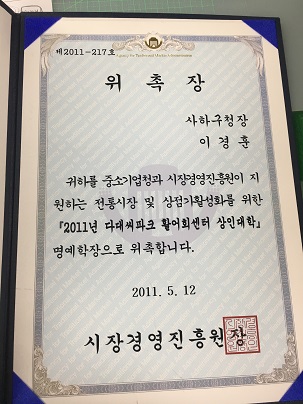 제2011-217호
Agency for Traditional Market Administration
위 촉 장
사하구청장
이 경 훈
귀하를 중소기업청과 시장경영진흥원이 지
원하는 전통시장 및 상점가활성화를 위한
『2011년 다대씨파크 활어회센터 상인대학』
명예학장으로 위촉합니다.
2011. 5. 12
시장경영진흥원장